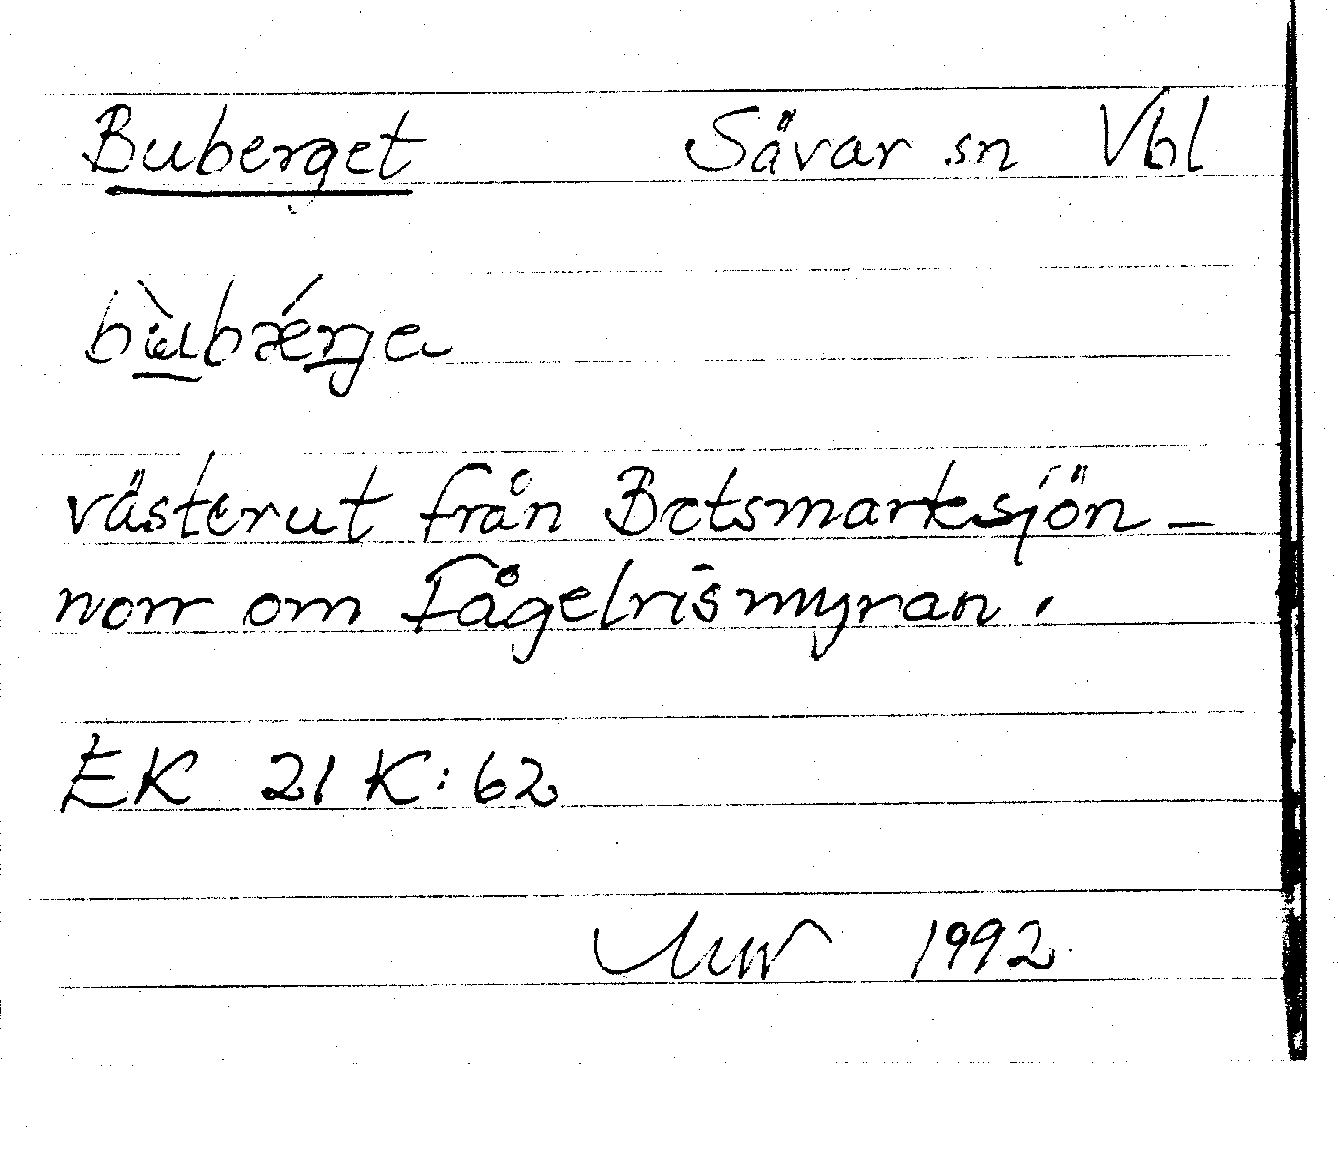 Buberget Sävar sn Vbl
bùbǽrga
västerut från Botsmarksjön –
norr om Fågelrismyran.
EK 21 K: 62
1992